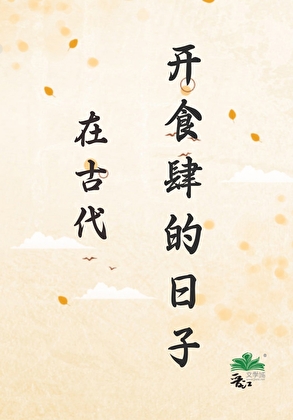 在古代
开食肆的日子
文學城
晋江